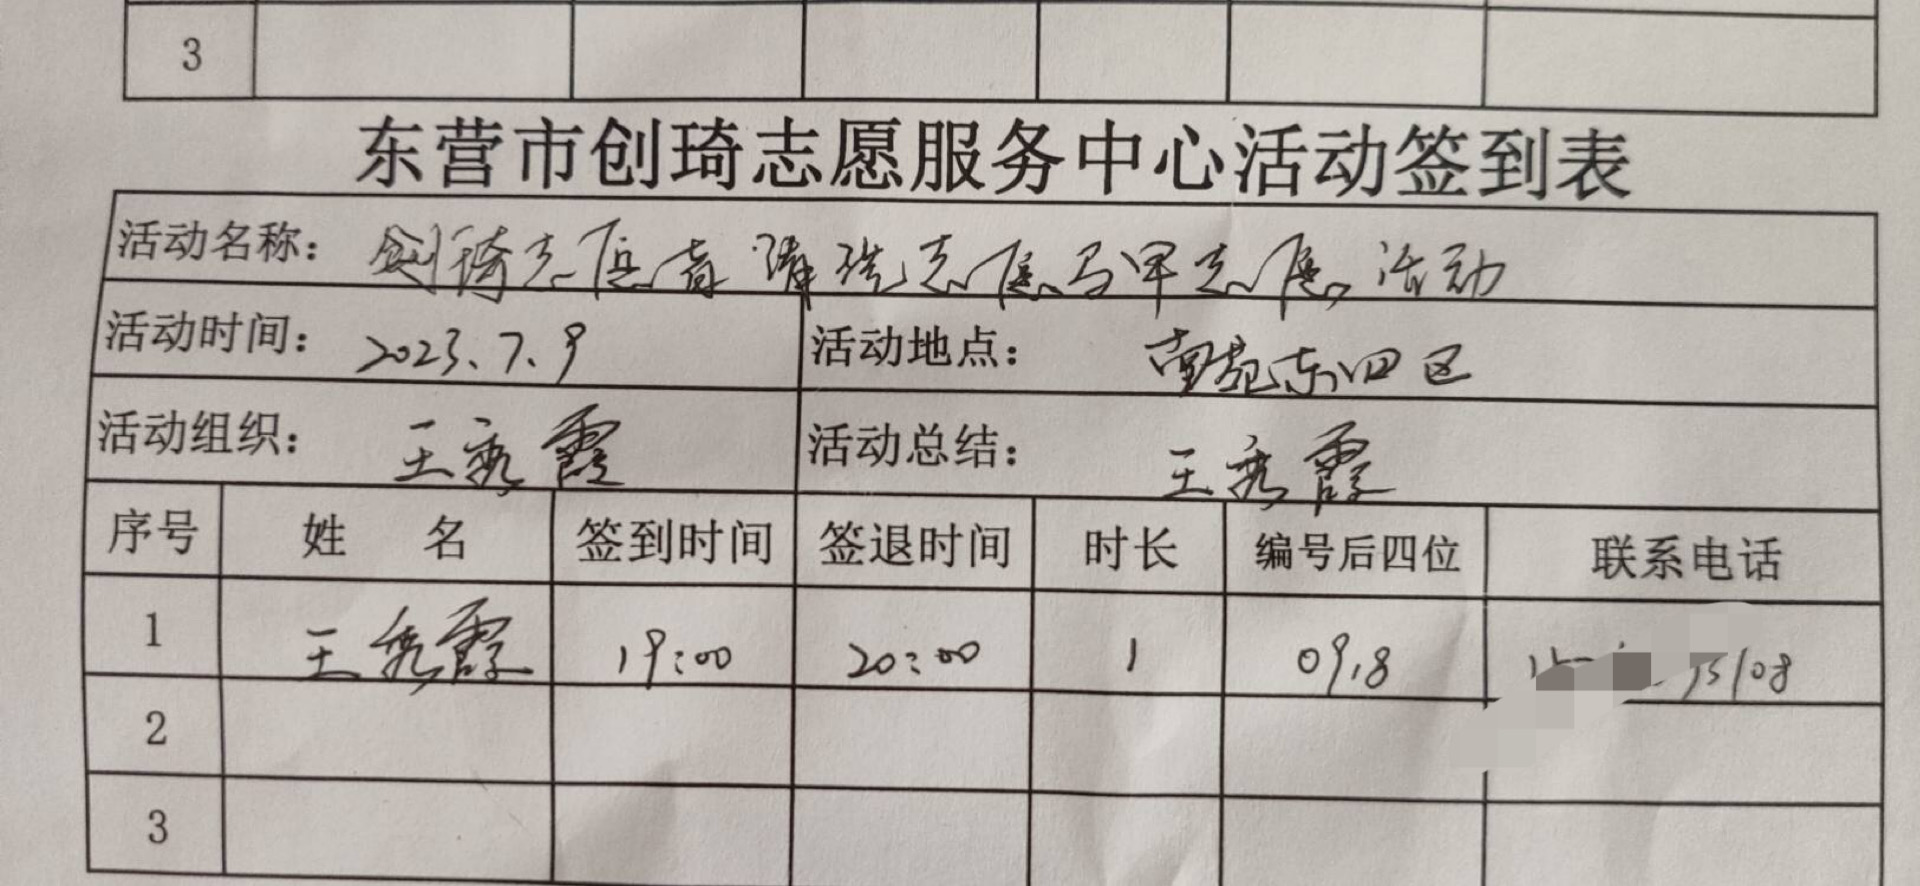 3
东营市创琦志愿服务中心活动签到表
活动名称： 创琦志愿者清洗志愿马甲志愿活动
活动时间： 2023.7.9 活动地点： 南苑东四区
活动组织： 王秀霞 活动总结： 王秀霞
序号 姓 名 签到时间 签退时间 时长 编号后四位 联系电话
1 王秀霞 19:00 20:00 1 0918
2
3